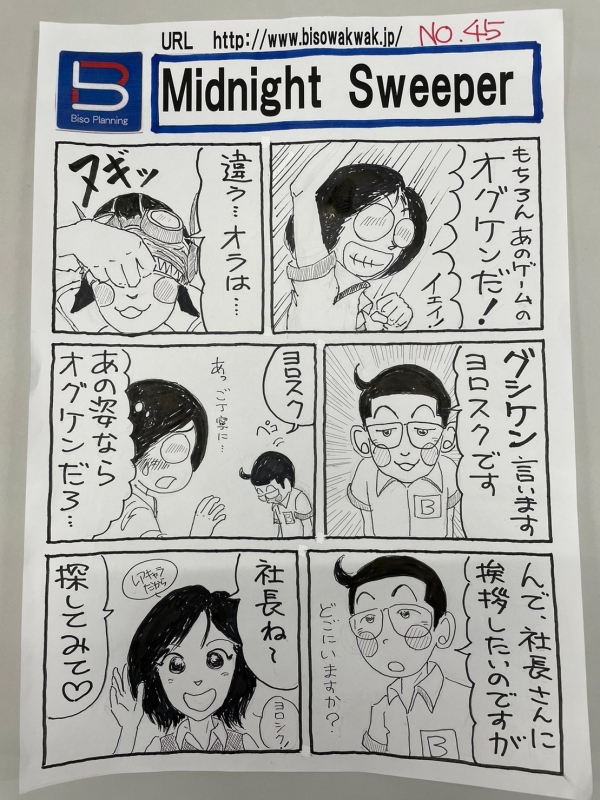 URL http://www.bisowakwak.jp/ NO.45
Biso Planning
Midnight Sweeper
もちろんあのゲームの
オグケンだ!
イェイ!
違う…オラは…
ヌギッ
グシケン言います
ヨロスクです
ヨロスク
ペコ
あっご丁寧に…
あの姿なら
オグケンだろ…
んで、社長さんに
挨拶したいのですが
どこにいますか?
B
社長ね〜
レアキャラ
だから
探してみて♡
ヨロシク!